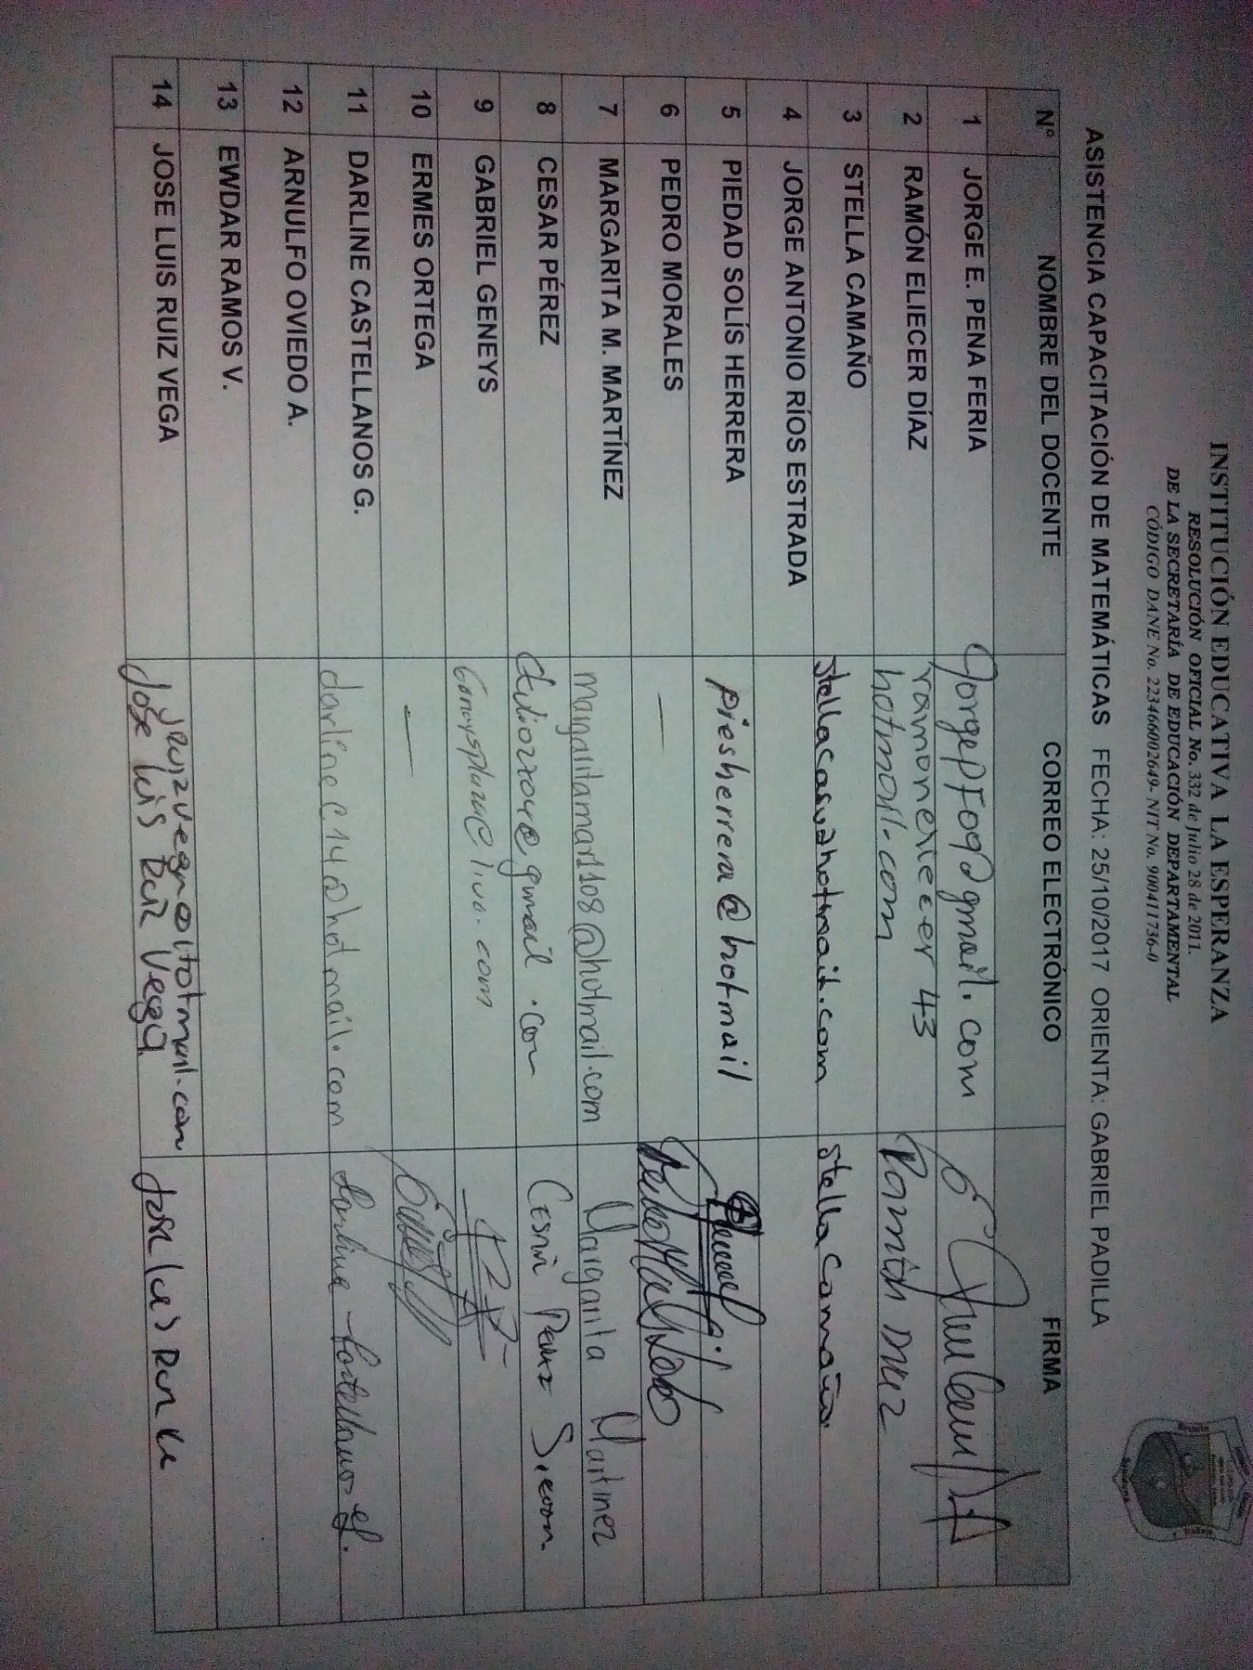 INSTITUCIÓN EDUCATIVA LA ESPERANZA
RESOLUCIÓN OFICIAL No. 332 de Julio 28 de 2011.
DE LA SECRETARÍA DE EDUCACIÓN DEPARTAMENTAL
CÓDIGO DANE No. 223466002649- NIT No. 900411736-0
ASISTENCIA CAPACITACIÓN DE MATEMÁTICAS FECHA: 25/10/2017 ORIENTA: GABRIEL PADILLA
N° NOMBRE DEL DOCENTE CORREO ELECTRÓNICO FIRMA
1 JORGE E. PENA FERIA
2 RAMÓN ELIECER DÍAZ ramoneliecer43
hotmail.com Ramón
3 STELLA CAMAÑO Stella Camaño
4 JORGE ANTONIO RÍOS ESTRADA
5 PIEDAD SOLÍS HERRERA piesherrera@hotmail
6 PEDRO MORALES —
7 MARGARITA M. MARTÍNEZ margaritamar1108@hotmail.com Margarita Martinez
8 CESAR PÉREZ Cesar Perez
9 GABRIEL GENEYS
10 ERMES ORTEGA —
11 DARLINE CASTELLANOS G. darlinec14@hotmail.com Darline Castellanos G.
12 ARNULFO OVIEDO A.
13 EWDAR RAMOS V.
14 JOSE LUIS RUIZ VEGA
Jose luis Ruiz Vega